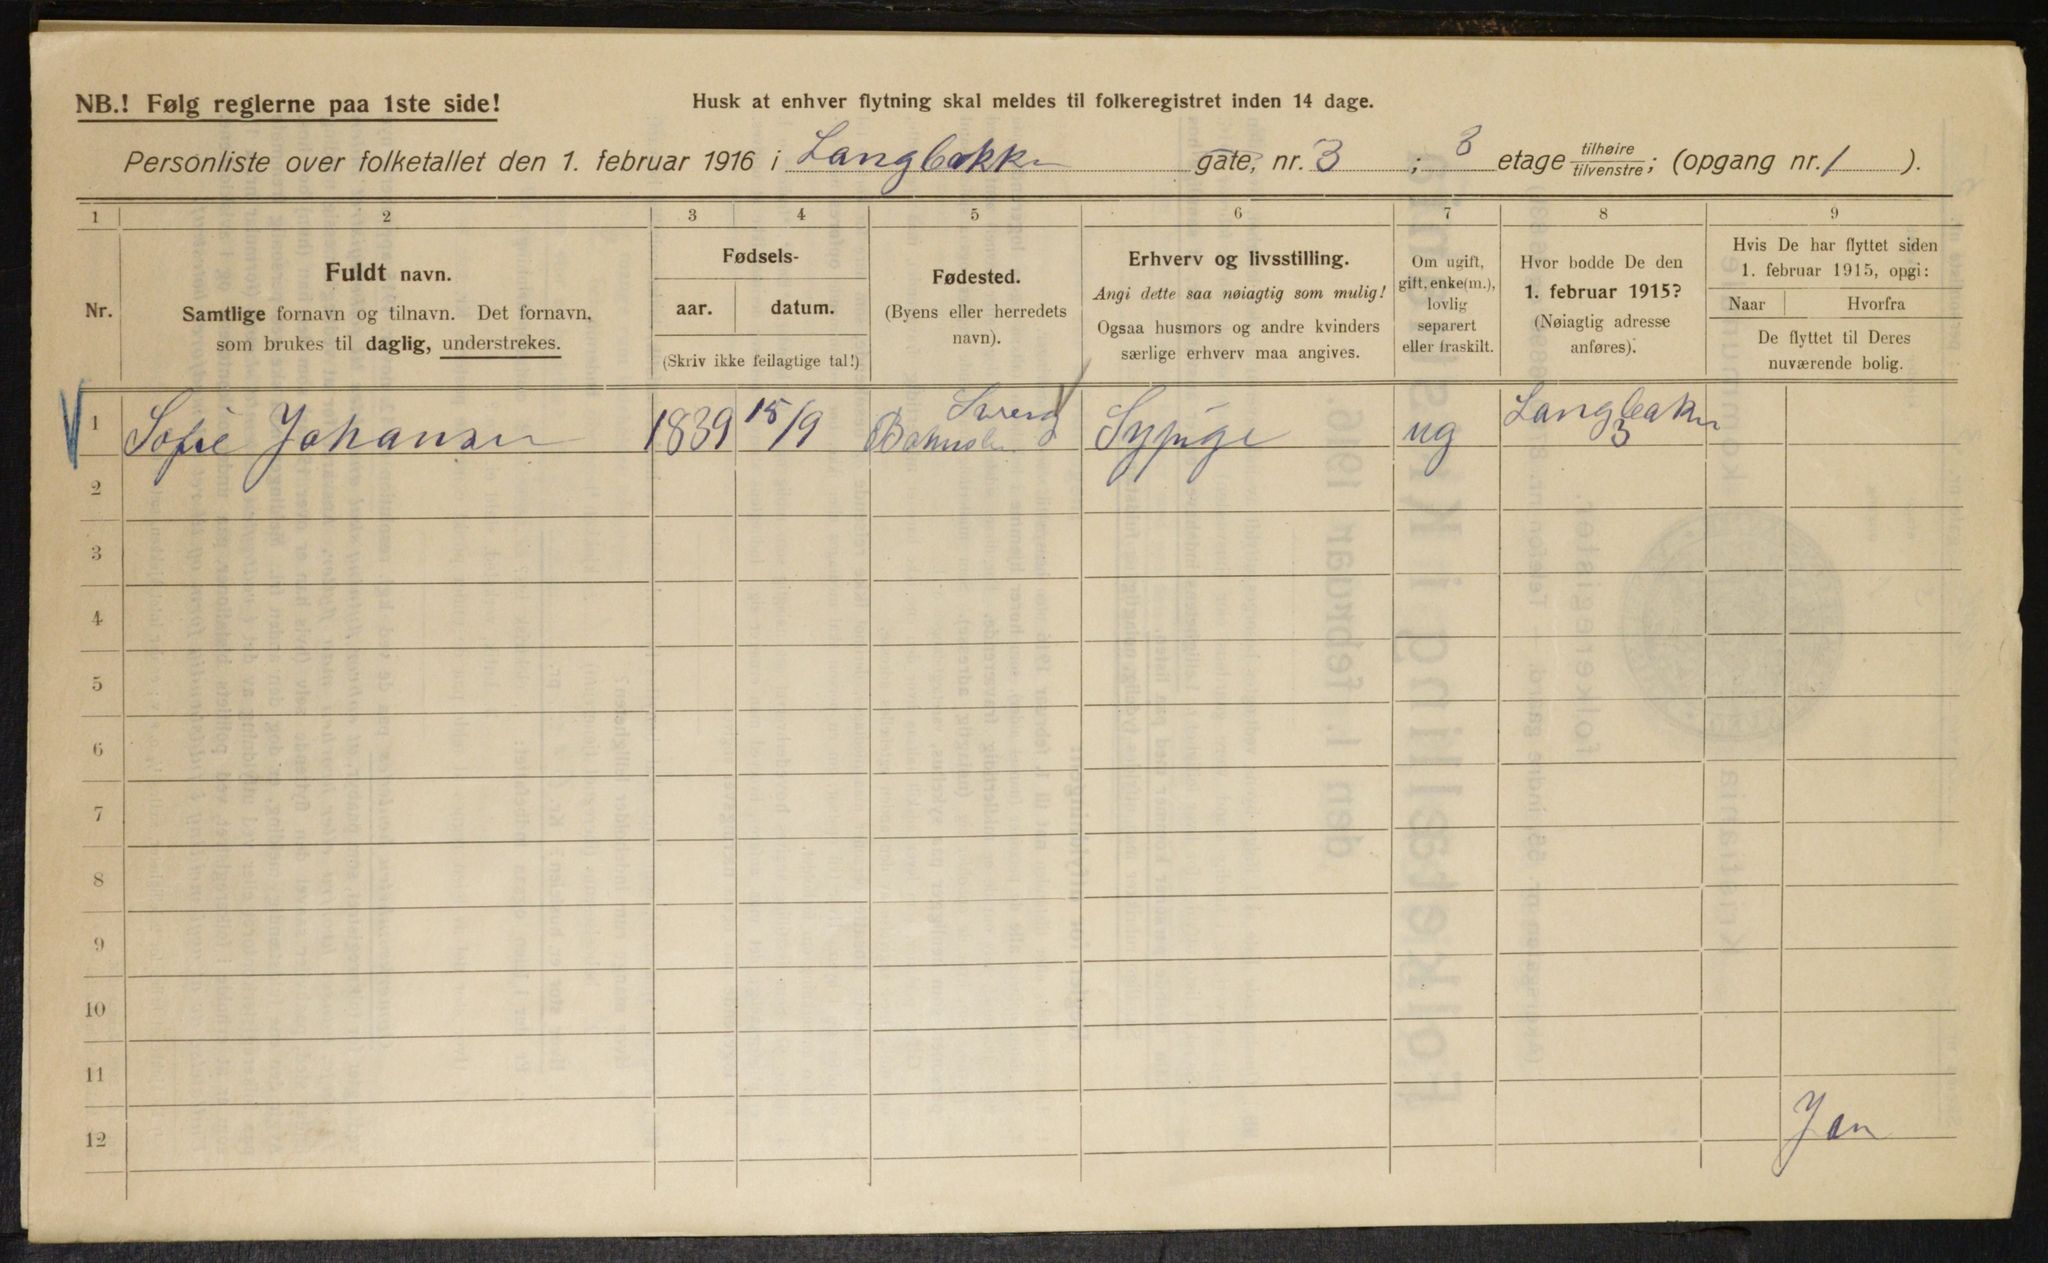 NB.! Følg reglerne paa 1ste side!
Husk at enhver flytning skal meldes til folkeregistret inden 14 dage.
Personliste over folketallet den 1. februar 1916 i Langbakken gate, nr. 3 ; 3 etage tilhøire tilvenstre ; (opgang nr. 1 ).
1 2 3 4 5 6 7 8 9
Nr.
Fuldt navn.
Samtlige fornavn og tilnavn. Det fornavn,
som brukes til daglig, understrekes.
Fødsels-
aar. datum.
(Skriv ikke feilagtige tal!)
Fødested.
(Byens eller herredets
navn).
Erhverv og livsstilling.
Angi dette saa nøiagtig som mulig!
Ogsaa husmors og andre kvinders
særlige erhverv maa angives.
Om ugift,
gift, enke(m.),
lovlig
separert
eller fraskilt.
Hvor bodde De den
1. februar 1915?
(Nøiagtig adresse
anføres).
Hvis De har flyttet siden
1. februar 1915, opgi:
Naar Hvorfra
De flyttet til Deres
nuværende bolig.
1 Sofie Johansen 1839 15/9 Sypige ug Langbakken 3
2
3
4
5
6
7
8
9
10
11
12
Jan